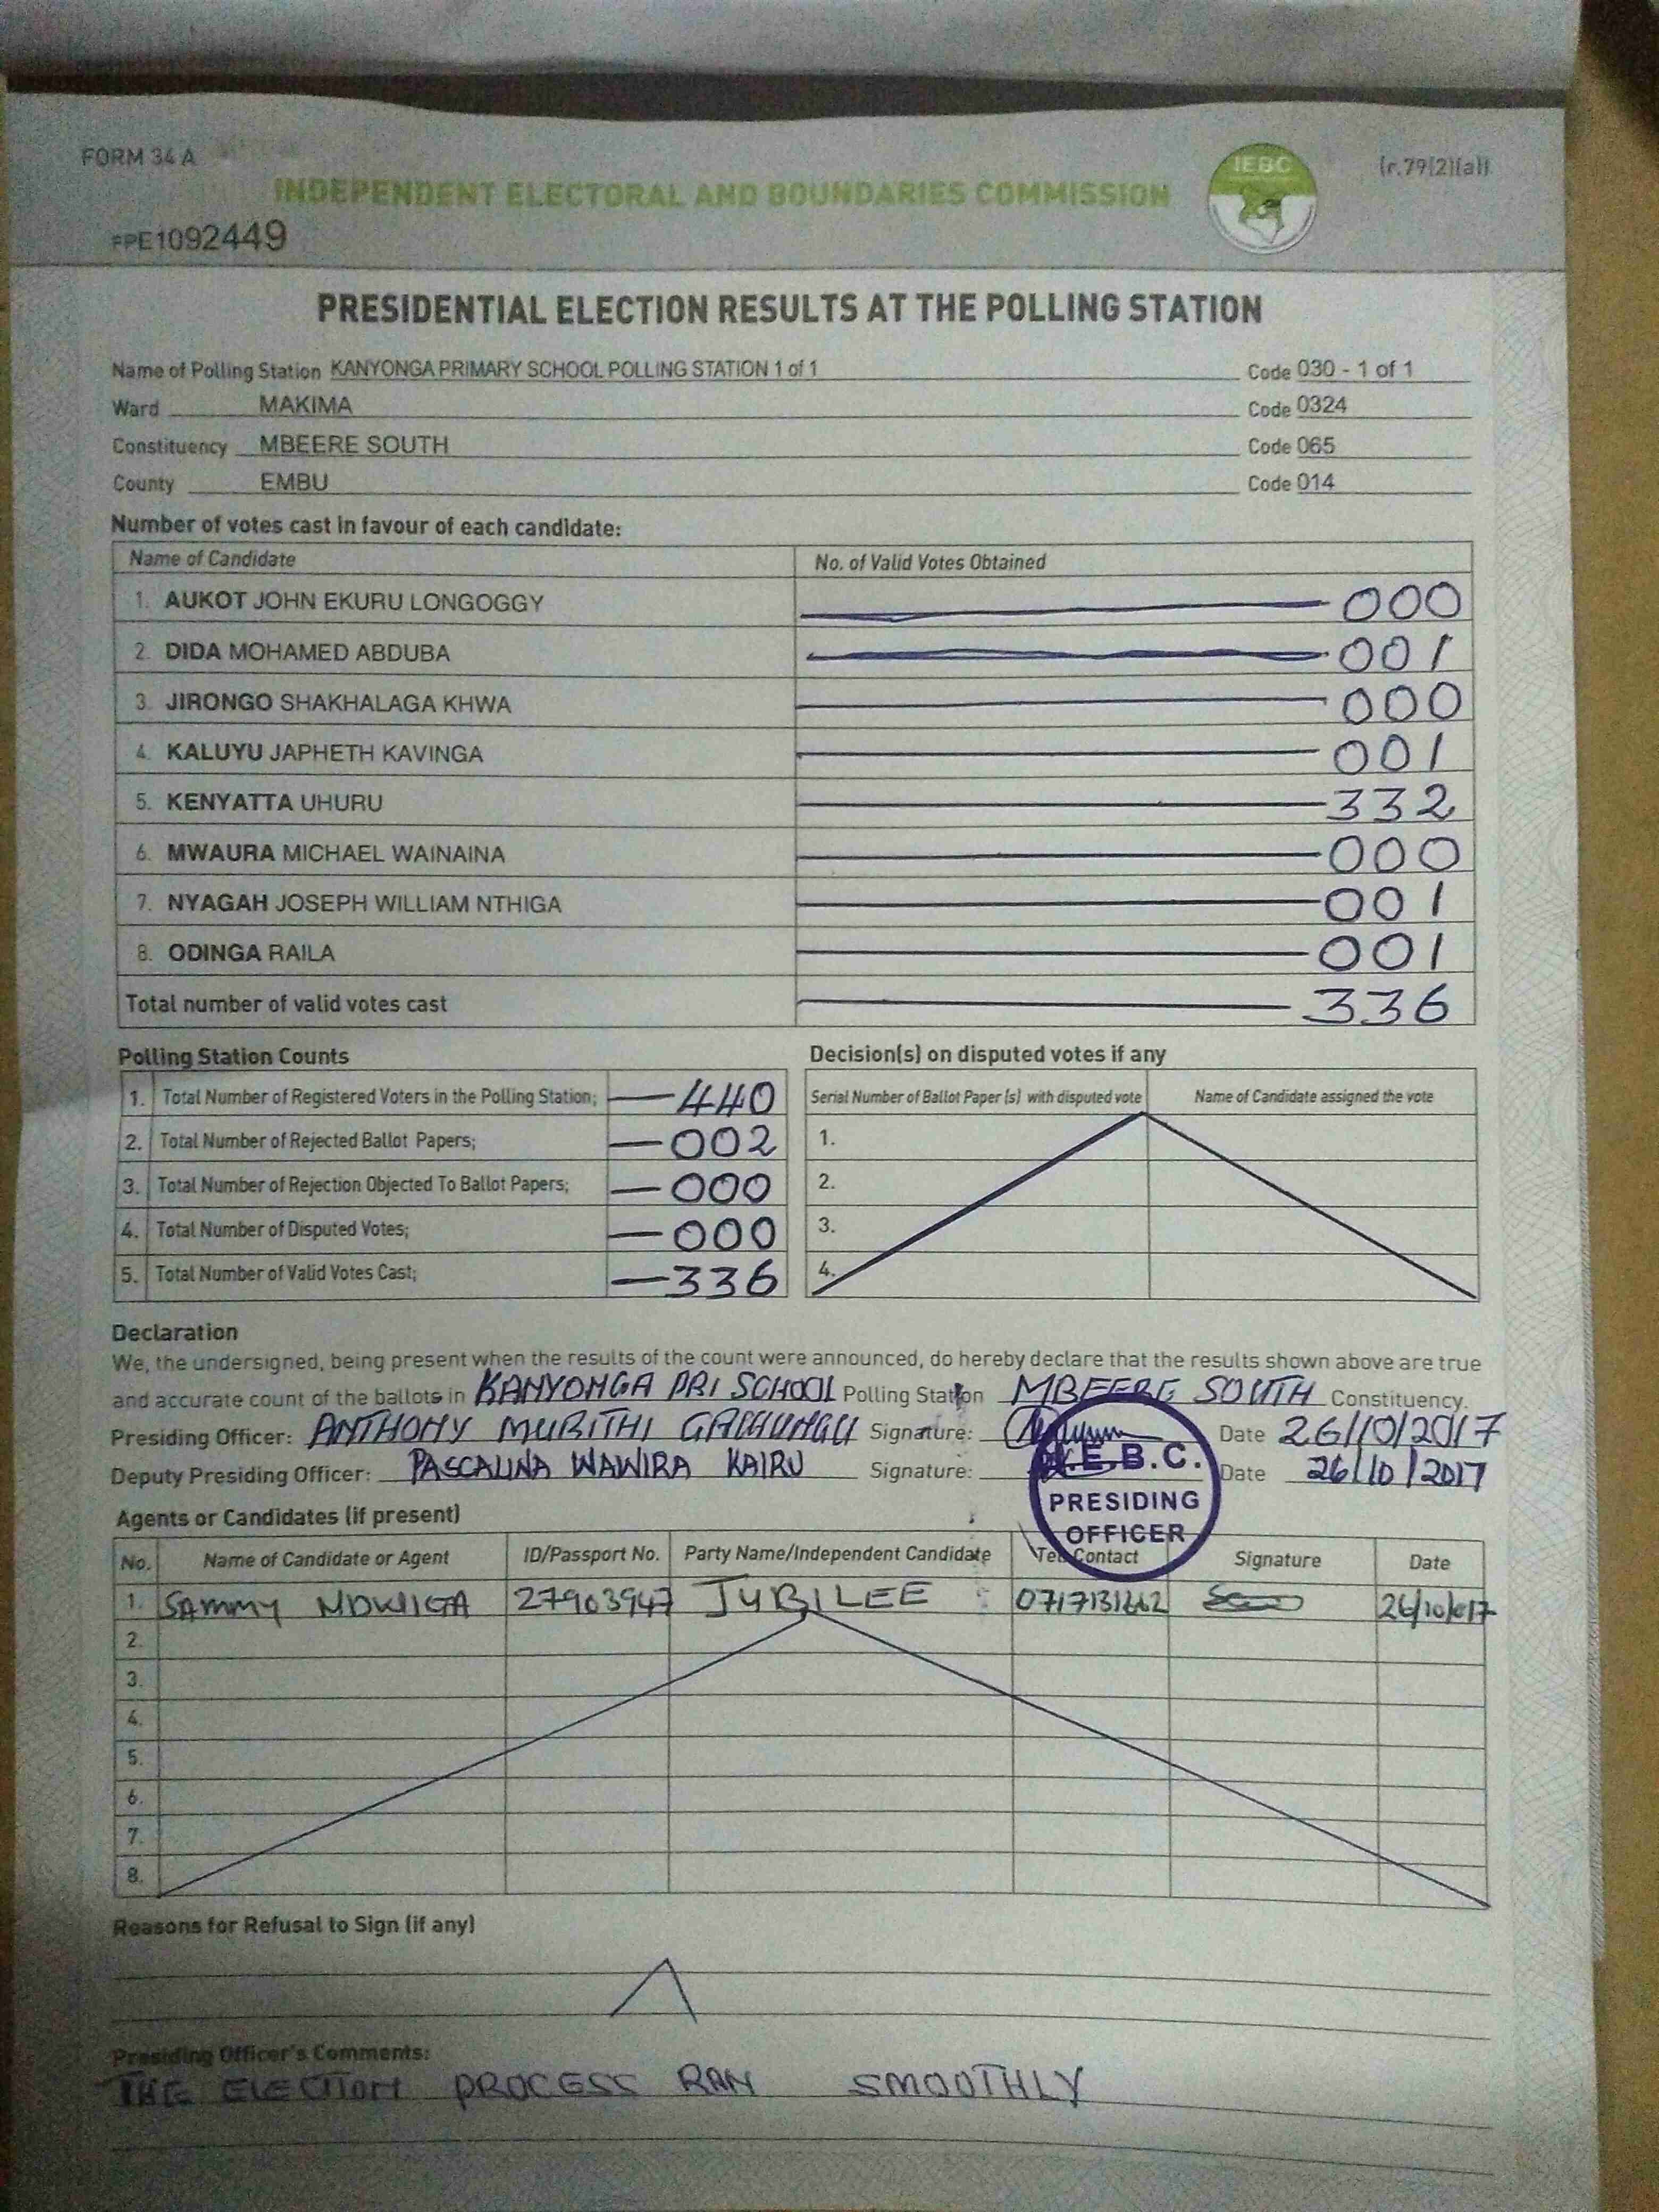 FORM 34 A
(r.79(2)(a))
INDEPENDENT ELECTORAL AND BOUNDARIES COMMISSION
IEBC
FPE1092449
PRESIDENTIAL ELECTION RESULTS AT THE POLLING STATION
Name of Polling Station KANYONGA PRIMARY SCHOOL POLLING STATION 1 of 1 Code 030 - 1 of 1
Ward MAKIMA Code 0324
Constituency MBEERE SOUTH Code 065
County EMBU Code 014
Number of votes cast in favour of each candidate:
Name of Candidate No. of Valid Votes Obtained
1. AUKOT JOHN EKURU LONGOGGY 000
2. DIDA MOHAMED ABDUBA 001
3. JIRONGO SHAKHALAGA KHWA 000
4. KALUYU JAPHETH KAVINGA 001
5. KENYATTA UHURU 332
6. MWAURA MICHAEL WAINAINA 000
7. NYAGAH JOSEPH WILLIAM NTHIGA 001
8. ODINGA RAILA 001
Total number of valid votes cast 336
Polling Station Counts
1. Total Number of Registered Voters in the Polling Station; 440
2. Total Number of Rejected Ballot Papers; 002
3. Total Number of Rejection Objected To Ballot Papers; 000
4. Total Number of Disputed Votes; 000
5. Total Number of Valid Votes Cast; 336
Decision(s) on disputed votes if any
Serial Number of Ballot Paper (s) with disputed vote Name of Candidate assigned the vote
1.
2.
3.
4.
Declaration
We, the undersigned, being present when the results of the count were announced, do hereby declare that the results shown above are true
and accurate count of the ballots in KANYONGA PRI SCHOOL Polling Station MBEERE SOUTH Constituency.
Presiding Officer: ANTHONY MURITHI Signature: Date 26/10/2017
Deputy Presiding Officer: PASCALINA WAWIRA KAIRU Signature: Date 26/10/2017
I.E.B.C.
PRESIDING
OFFICER
Agents or Candidates (if present)
No. Name of Candidate or Agent ID/Passport No. Party Name/Independent Candidate Tel. Contact Signature Date
1. SAMMY 27903947 JUBILEE
2.
3.
4.
5.
6.
7.
8.
Reasons for Refusal to Sign (if any)
Presiding Officer's Comments:
THE ELECTION PROCESS RAN SMOOTHLY